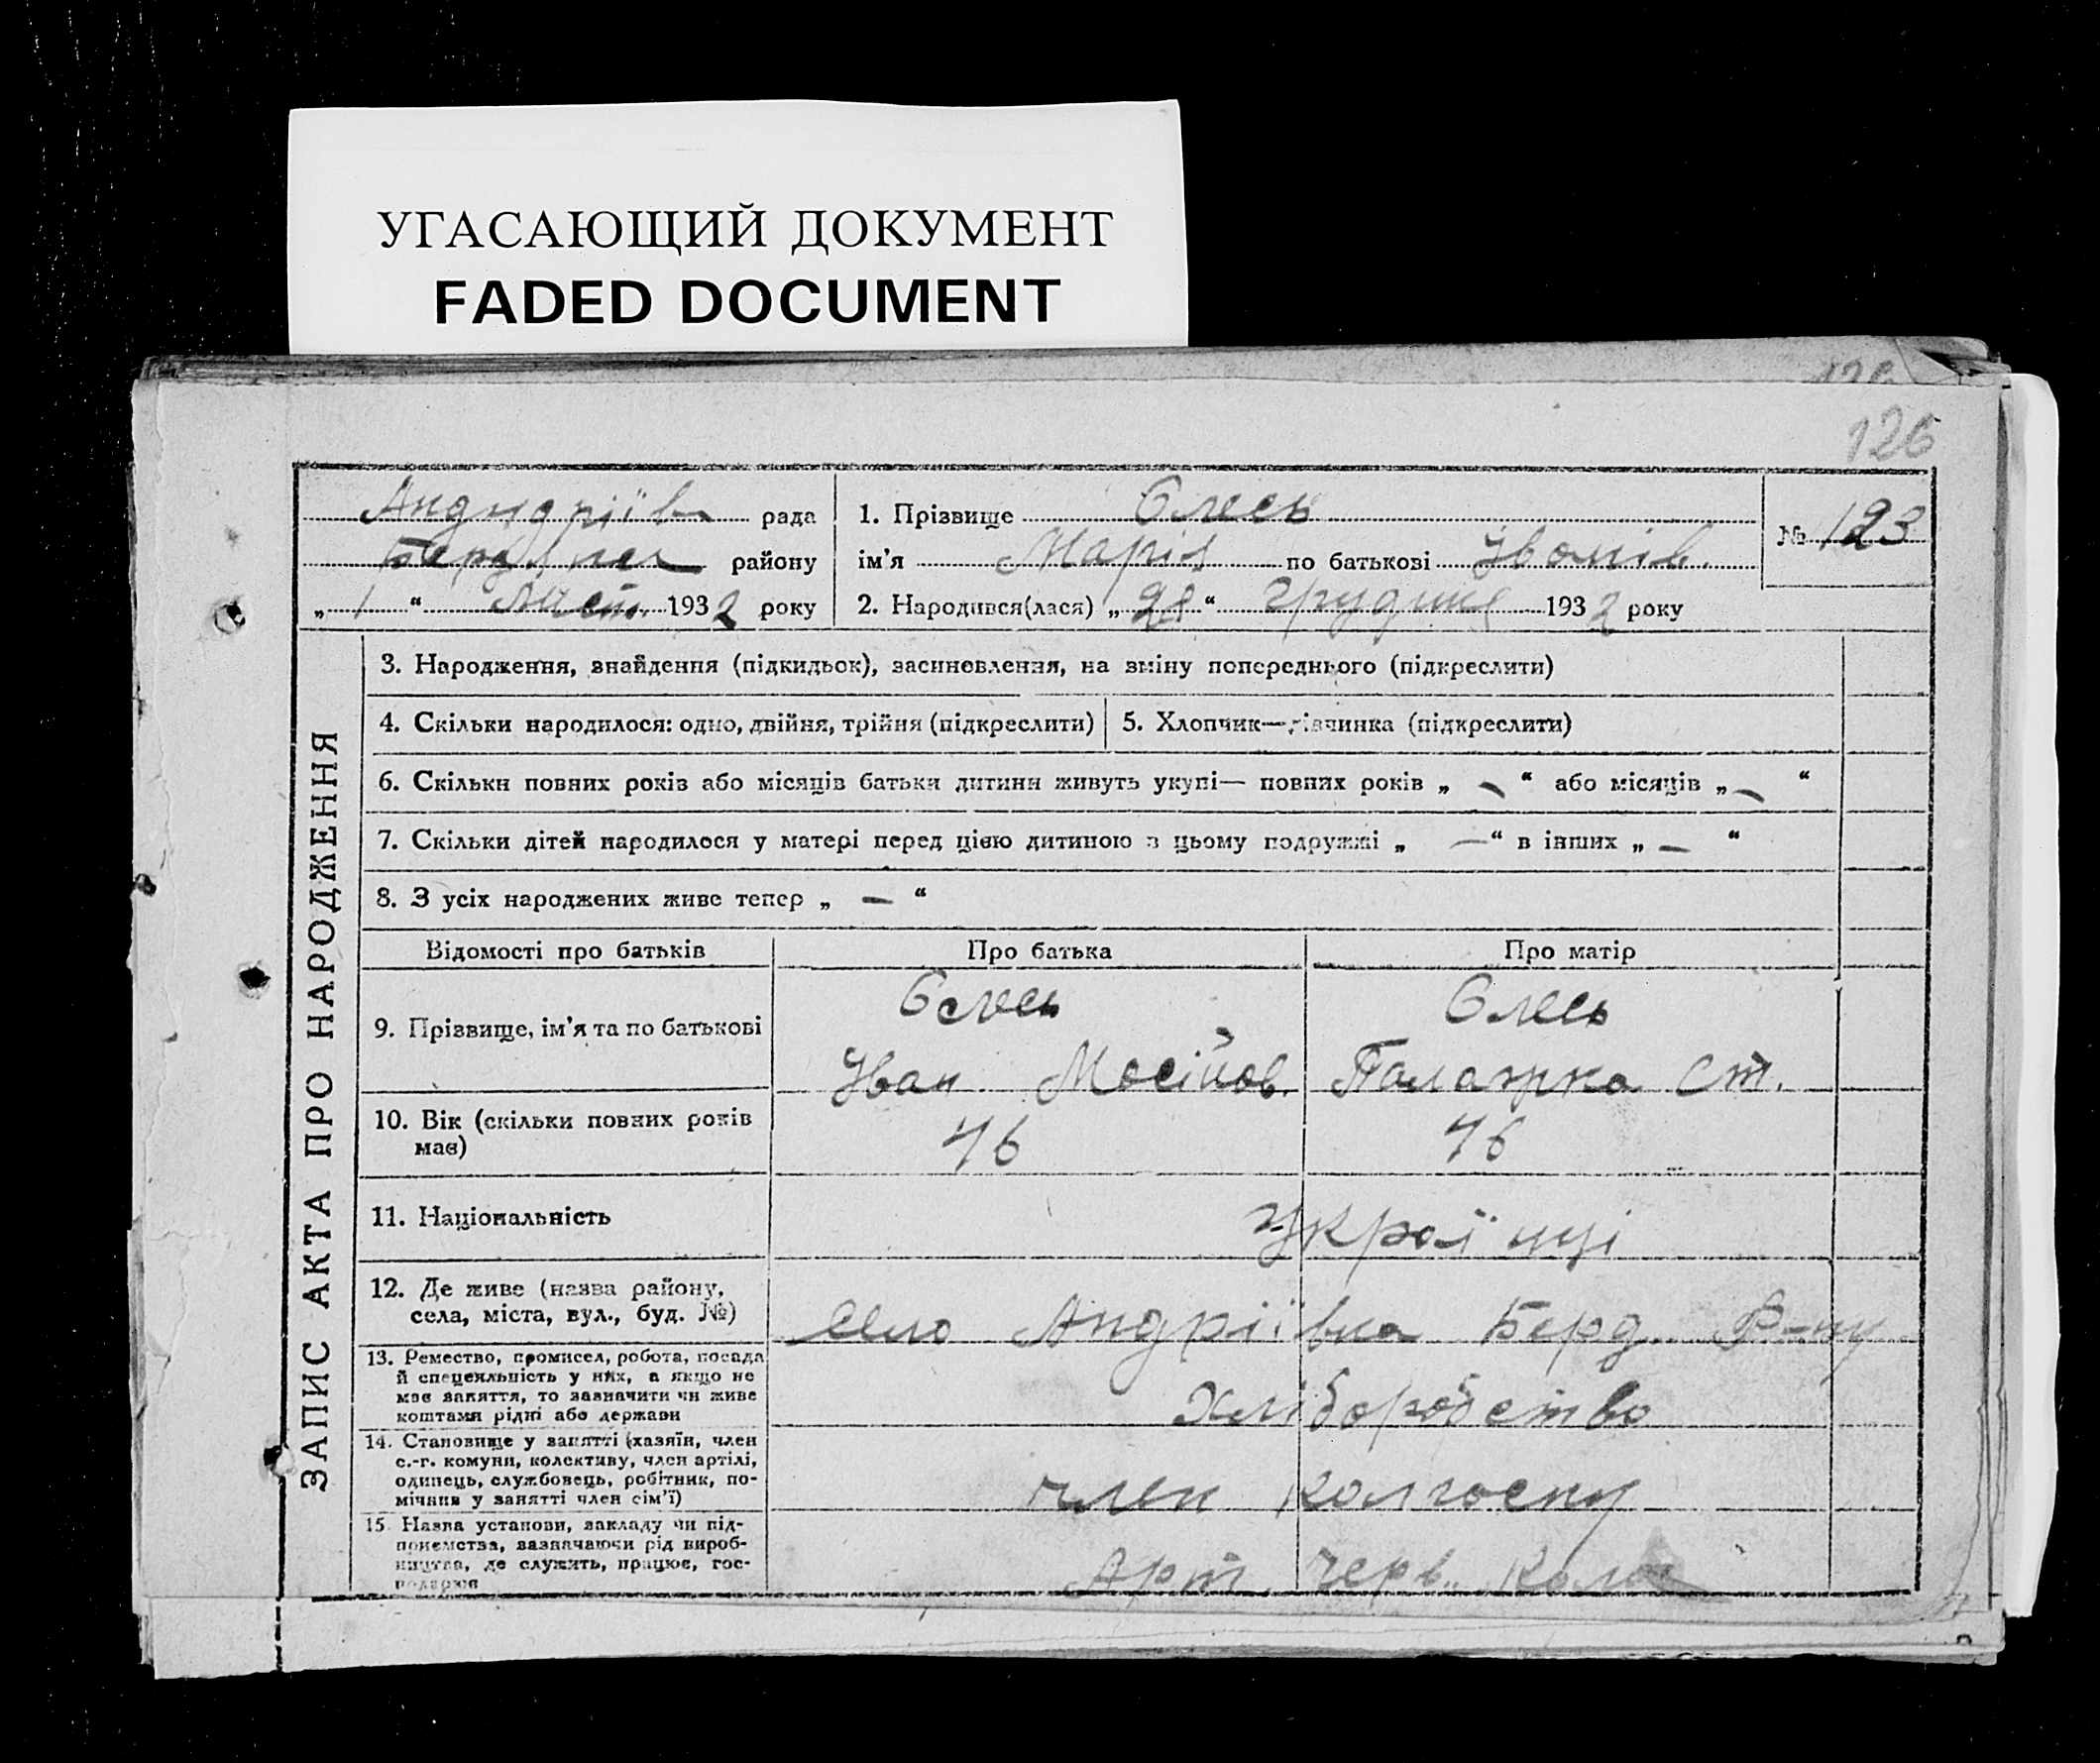 УГАСАЮЩИЙ ДОКУМЕНТ
FADED DOCUMENT
126
126
рада
району
„ 1 “ Лист. 1932 року
1. Прізвище Єлесь
ім'я Марія по батькові Іванів.
2. Народився(лася) „ 28 “ грудня 1932 року
№ 123
ЗАПИС АКТА ПРО НАРОДЖЕННЯ
3. Народження, знайдення (підкидьок), засиновлення, на зміну попереднього (підкреслити)
4. Скільки народилося: одно, двійня, трійня (підкреслити)
5. Хлопчик—дівчинка (підкреслити)
6. Скільки повних років або місяців батьки дитини живуть укупі— повних років „ — “ або місяців „ — “
7. Скільки дітей народилося у матері перед цією дитиною в цьому подружжі „ — “ в інших „ — “
8. З усіх народжених живе тепер „ — “
Відомості про батьків Про батька Про матір
9. Прізвище, ім'я та по батькові
Єлесь Єлесь
Іван Мосійов. Палажка Ст.
10. Вік (скільки повних років
має)
46 46
11. Національність
Українці
12. Де живе (назва району,
села, міста, вул., буд. №)
Село Андріївка Берд. Р-ну
13. Ремество, промисел, робота, посада
й спеціяльність у них, а якщо не
має заняття, то зазначити чи живе
коштами рідні або держави
Хліборобство
14. Становище у занятті (хазяїн, член
с.-г. комуни, колективу, член артілі,
одинець, службовець, робітник, по-
мічник у занятті член сім'ї)
член колгоспу
15. Назва установи, закладу чи під-
приємства, зазначаючи рід вироб-
ництва, де служить, працює, гос-
подарює
Арт. Черв.